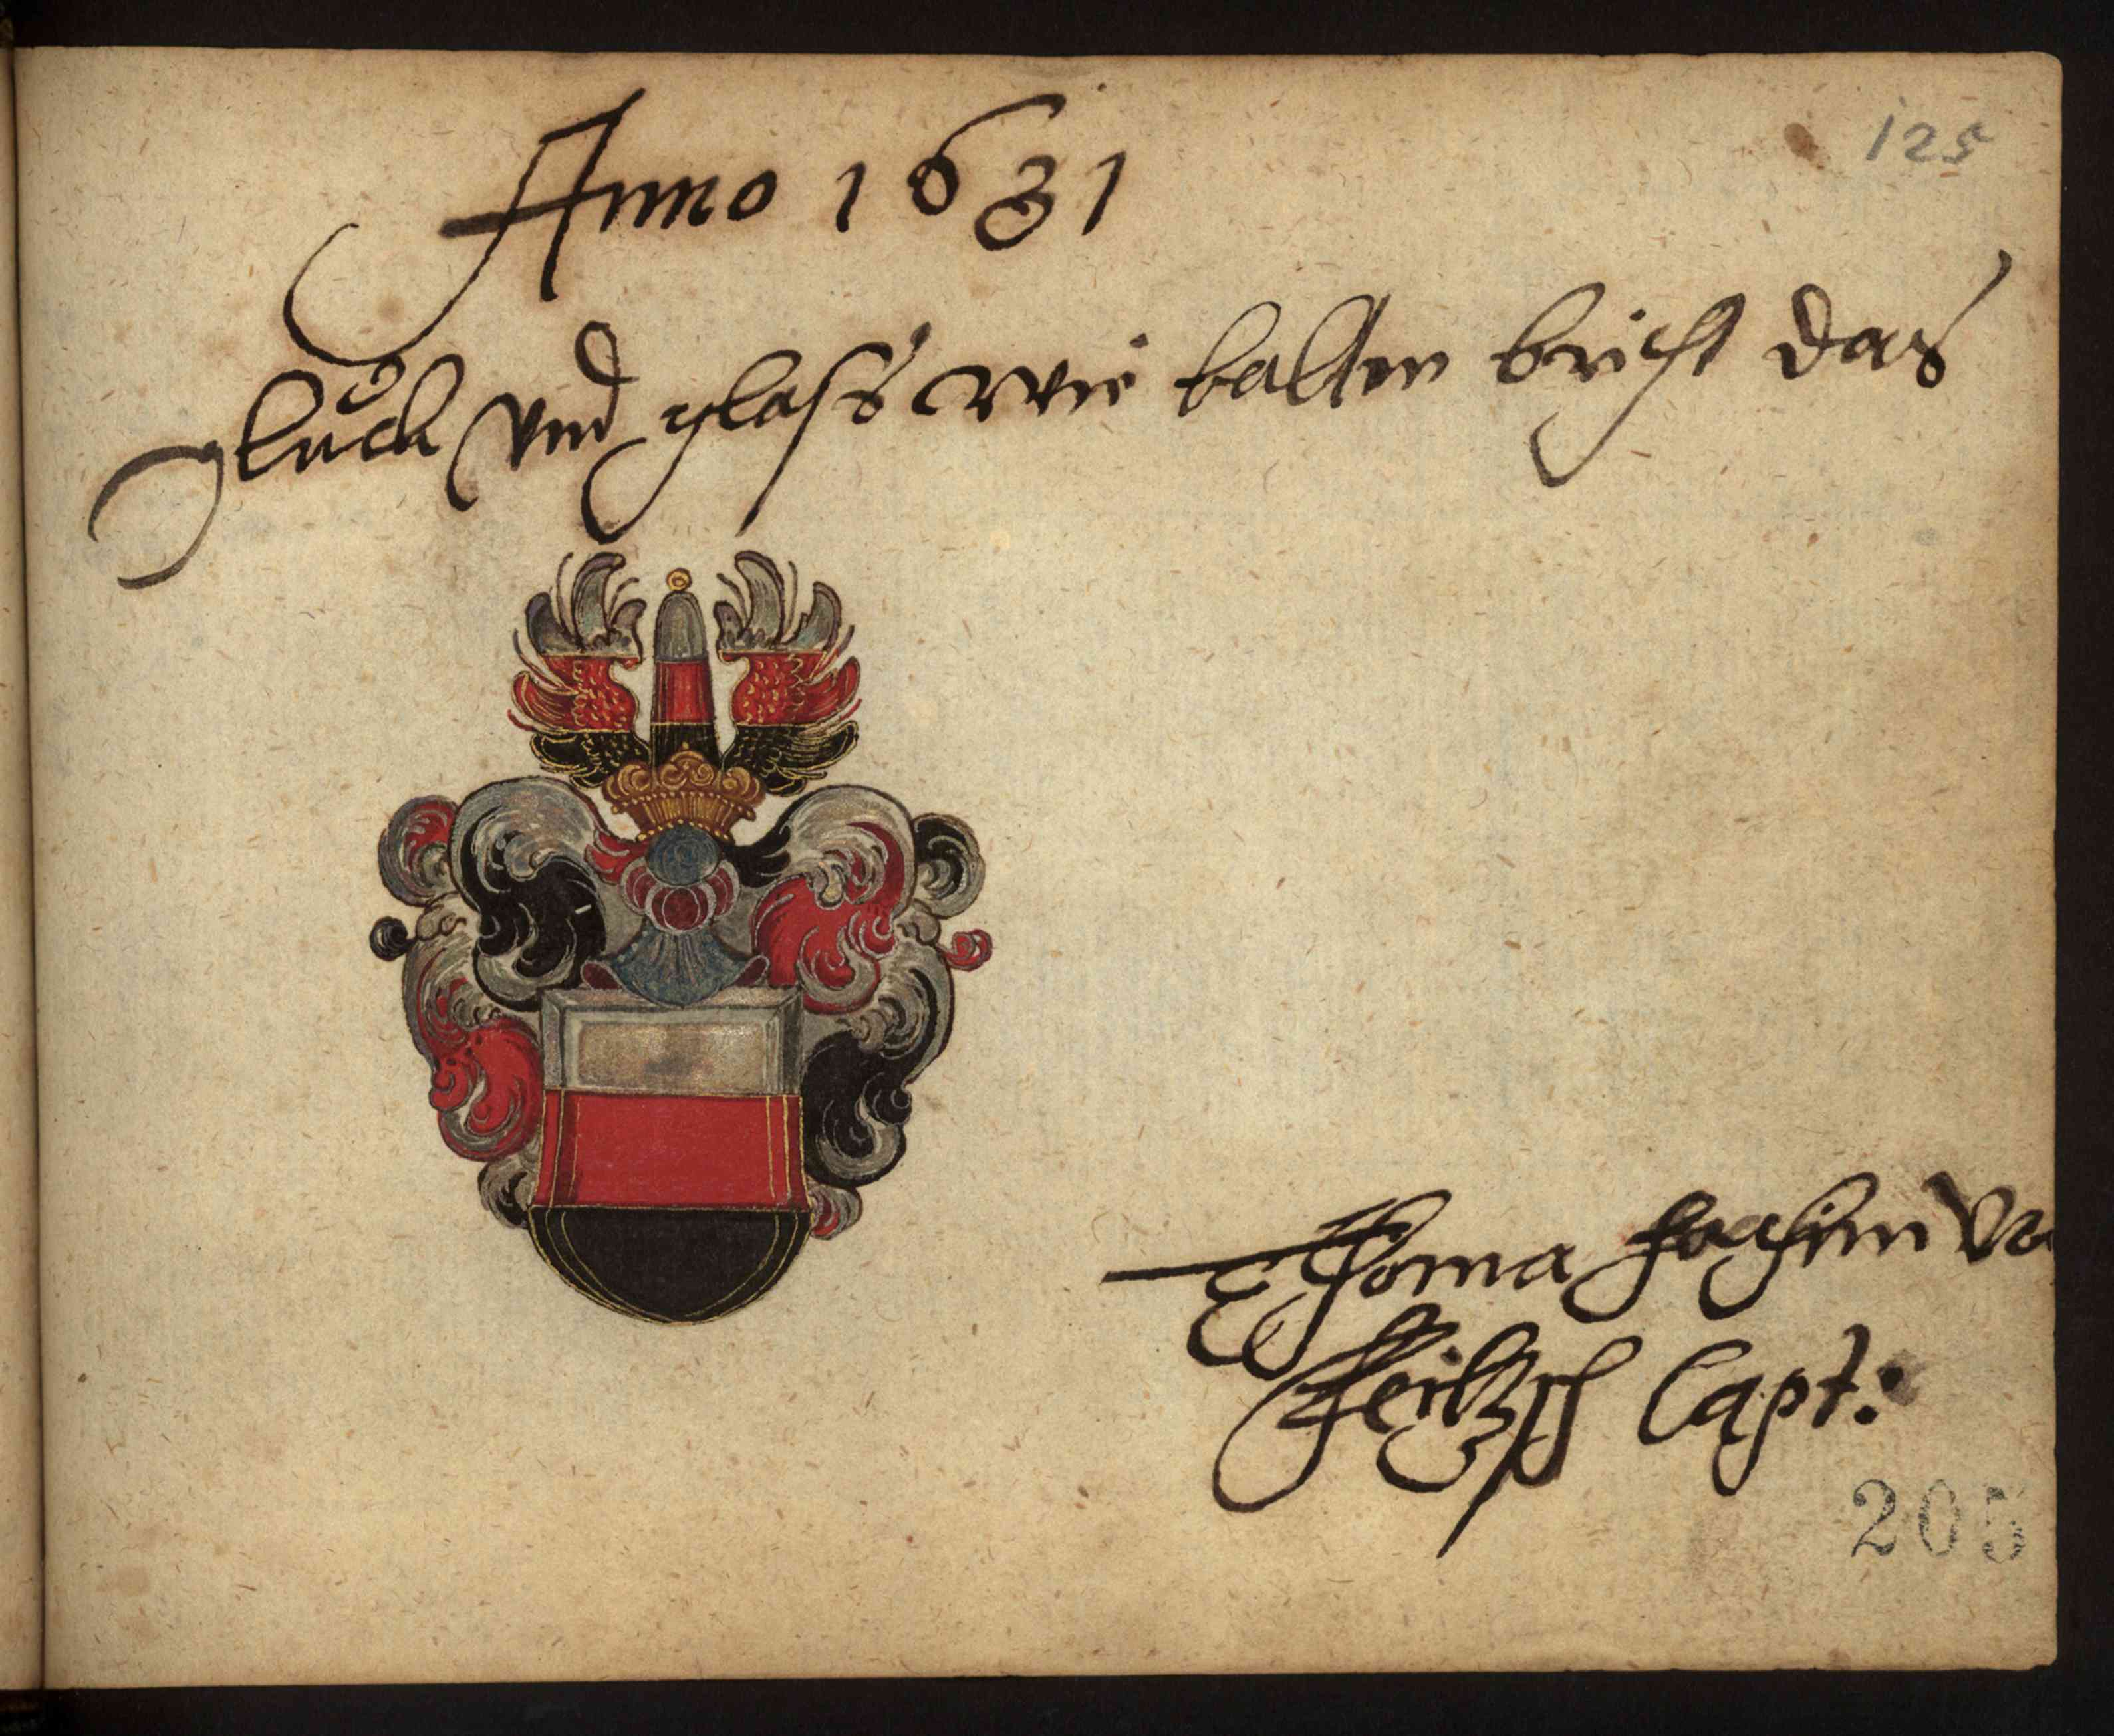 125
Anno 1631
glück vnd glass wie balten bricht das
Thoma Joachim Vo
Feiltzsch Capt:
205